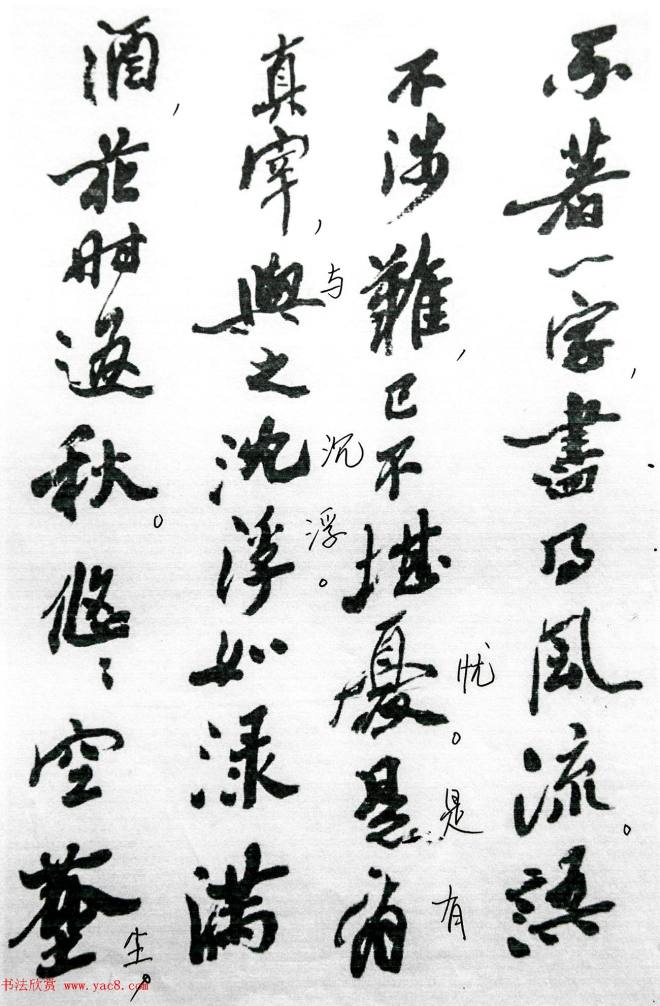 不著一字，盡得風流。語
不涉難，已不堪憂。是有
忧
是
有
真宰，與之沈浮。如渌滿
与
沉
浮
酒，花時返秋。悠〻空塵，
尘
书法欣赏 www.yac8.com